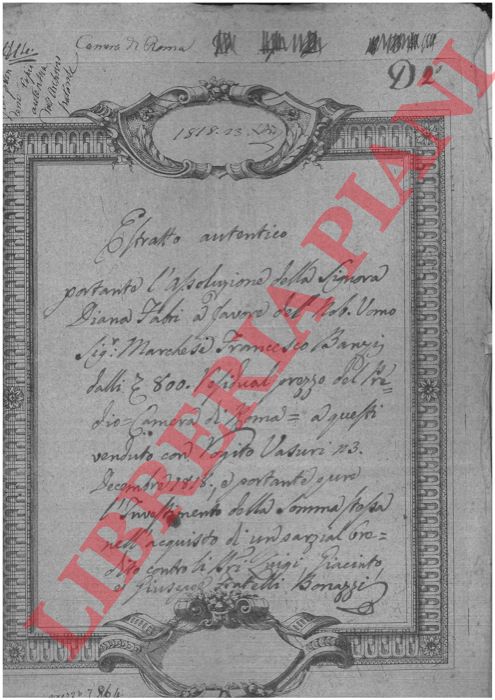 Camera di Roma
D 2°
1818. 23. Xbre
Estratto autentico
portante l'Assoluzione della Signora
Diana Fabri a favore del Nob. Uomo
Sigr. Marchese Francesco Banzi
dalli 800. Residual prezzo del Pre=
dio= Camera di Roma= a questi
venduto con Rogito Vasuri 23.
Decembre 1818. e portante pure
l'Investimento della Somma stessa
nell'acquisto di un parzial Cre=
dito contro li Sri. Luigi, Giacinto
e Giuseppe Fratelli Bonazzi
LIBRERIA PIANI